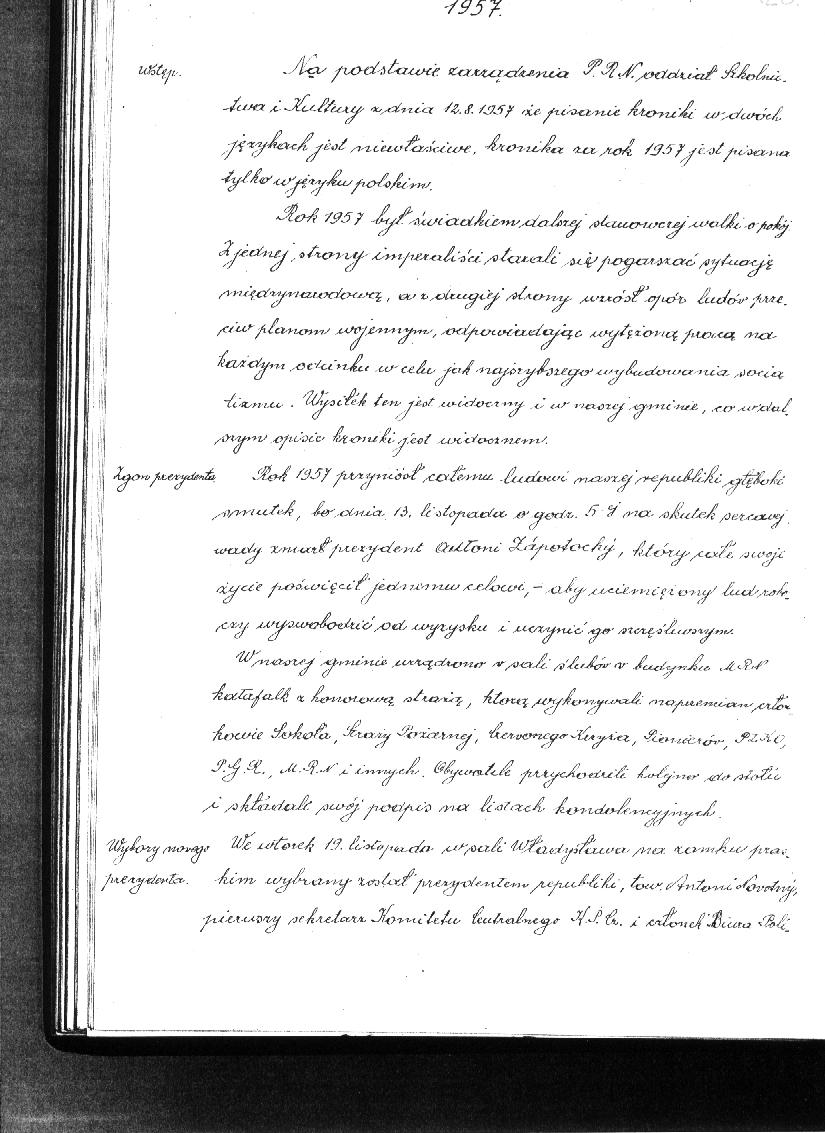 1957.
Wstęp.
Na podstawie zarządzenia P.R.N. oddział Szkolnic-
twa i Kultury z dnia 12.8.1957 że pisanie kroniki w dwóch
językach jest niewłaściwe, kronika za rok 1957 jest pisana
tylko w języku polskim.
Rok 1957 był świadkiem dalszej stanowczej walki o pokój
Z jednej strony imperaliści starali się pogarszać sytuację
międzynarodową, a z drugiej strony wzrósł opór ludów prze-
ciw planom wojennym, odpowiadając wytężoną pracą na
każdym odcinku w celu jak najszybszego wybudowania socia
lizmu. Wysiłek ten jest widoczny i w naszej gminie, co w dal-
szym opisie kroniki jest widocznem.
Zgon prezydenta
Rok 1957 przyniósł całemu ludowi naszej republiki głęboki
smutek, bo dnia 13. listopada o godz. na skutek sercowej
wady zmarł prezydent Antoni Zápotocký, który całe swoje
życie poświęcił jednemu celowi, – aby uciemiężony lud robo-
czy wyswobodzić od wyzysku i uczynić go szczęśliwszym.
W naszej gminie urządzono w sali ślubów w budynku M.R.N
katafalk z honorową strażą, którą wykonywali naprzemian człon-
kowie Sokoła, Straży Pożarnej, Czerwonego Krzyża, Pionierów, PZKO,
P.G.R., M.R.N i innych. Obywatele przychodzili kolejno do stolic
i składali swój podpis na listach kondolencyjnych.
Wybory nowego
prezydenta.
We wtorek 19. listopada w sali Władysława na zamku pras-
kim wybrany został prezydentem republiki, tow. Antoni Novotný,
pierwszy sekretarz Komitetu Centralnego K.P.Cz. i członek Biura Poli-